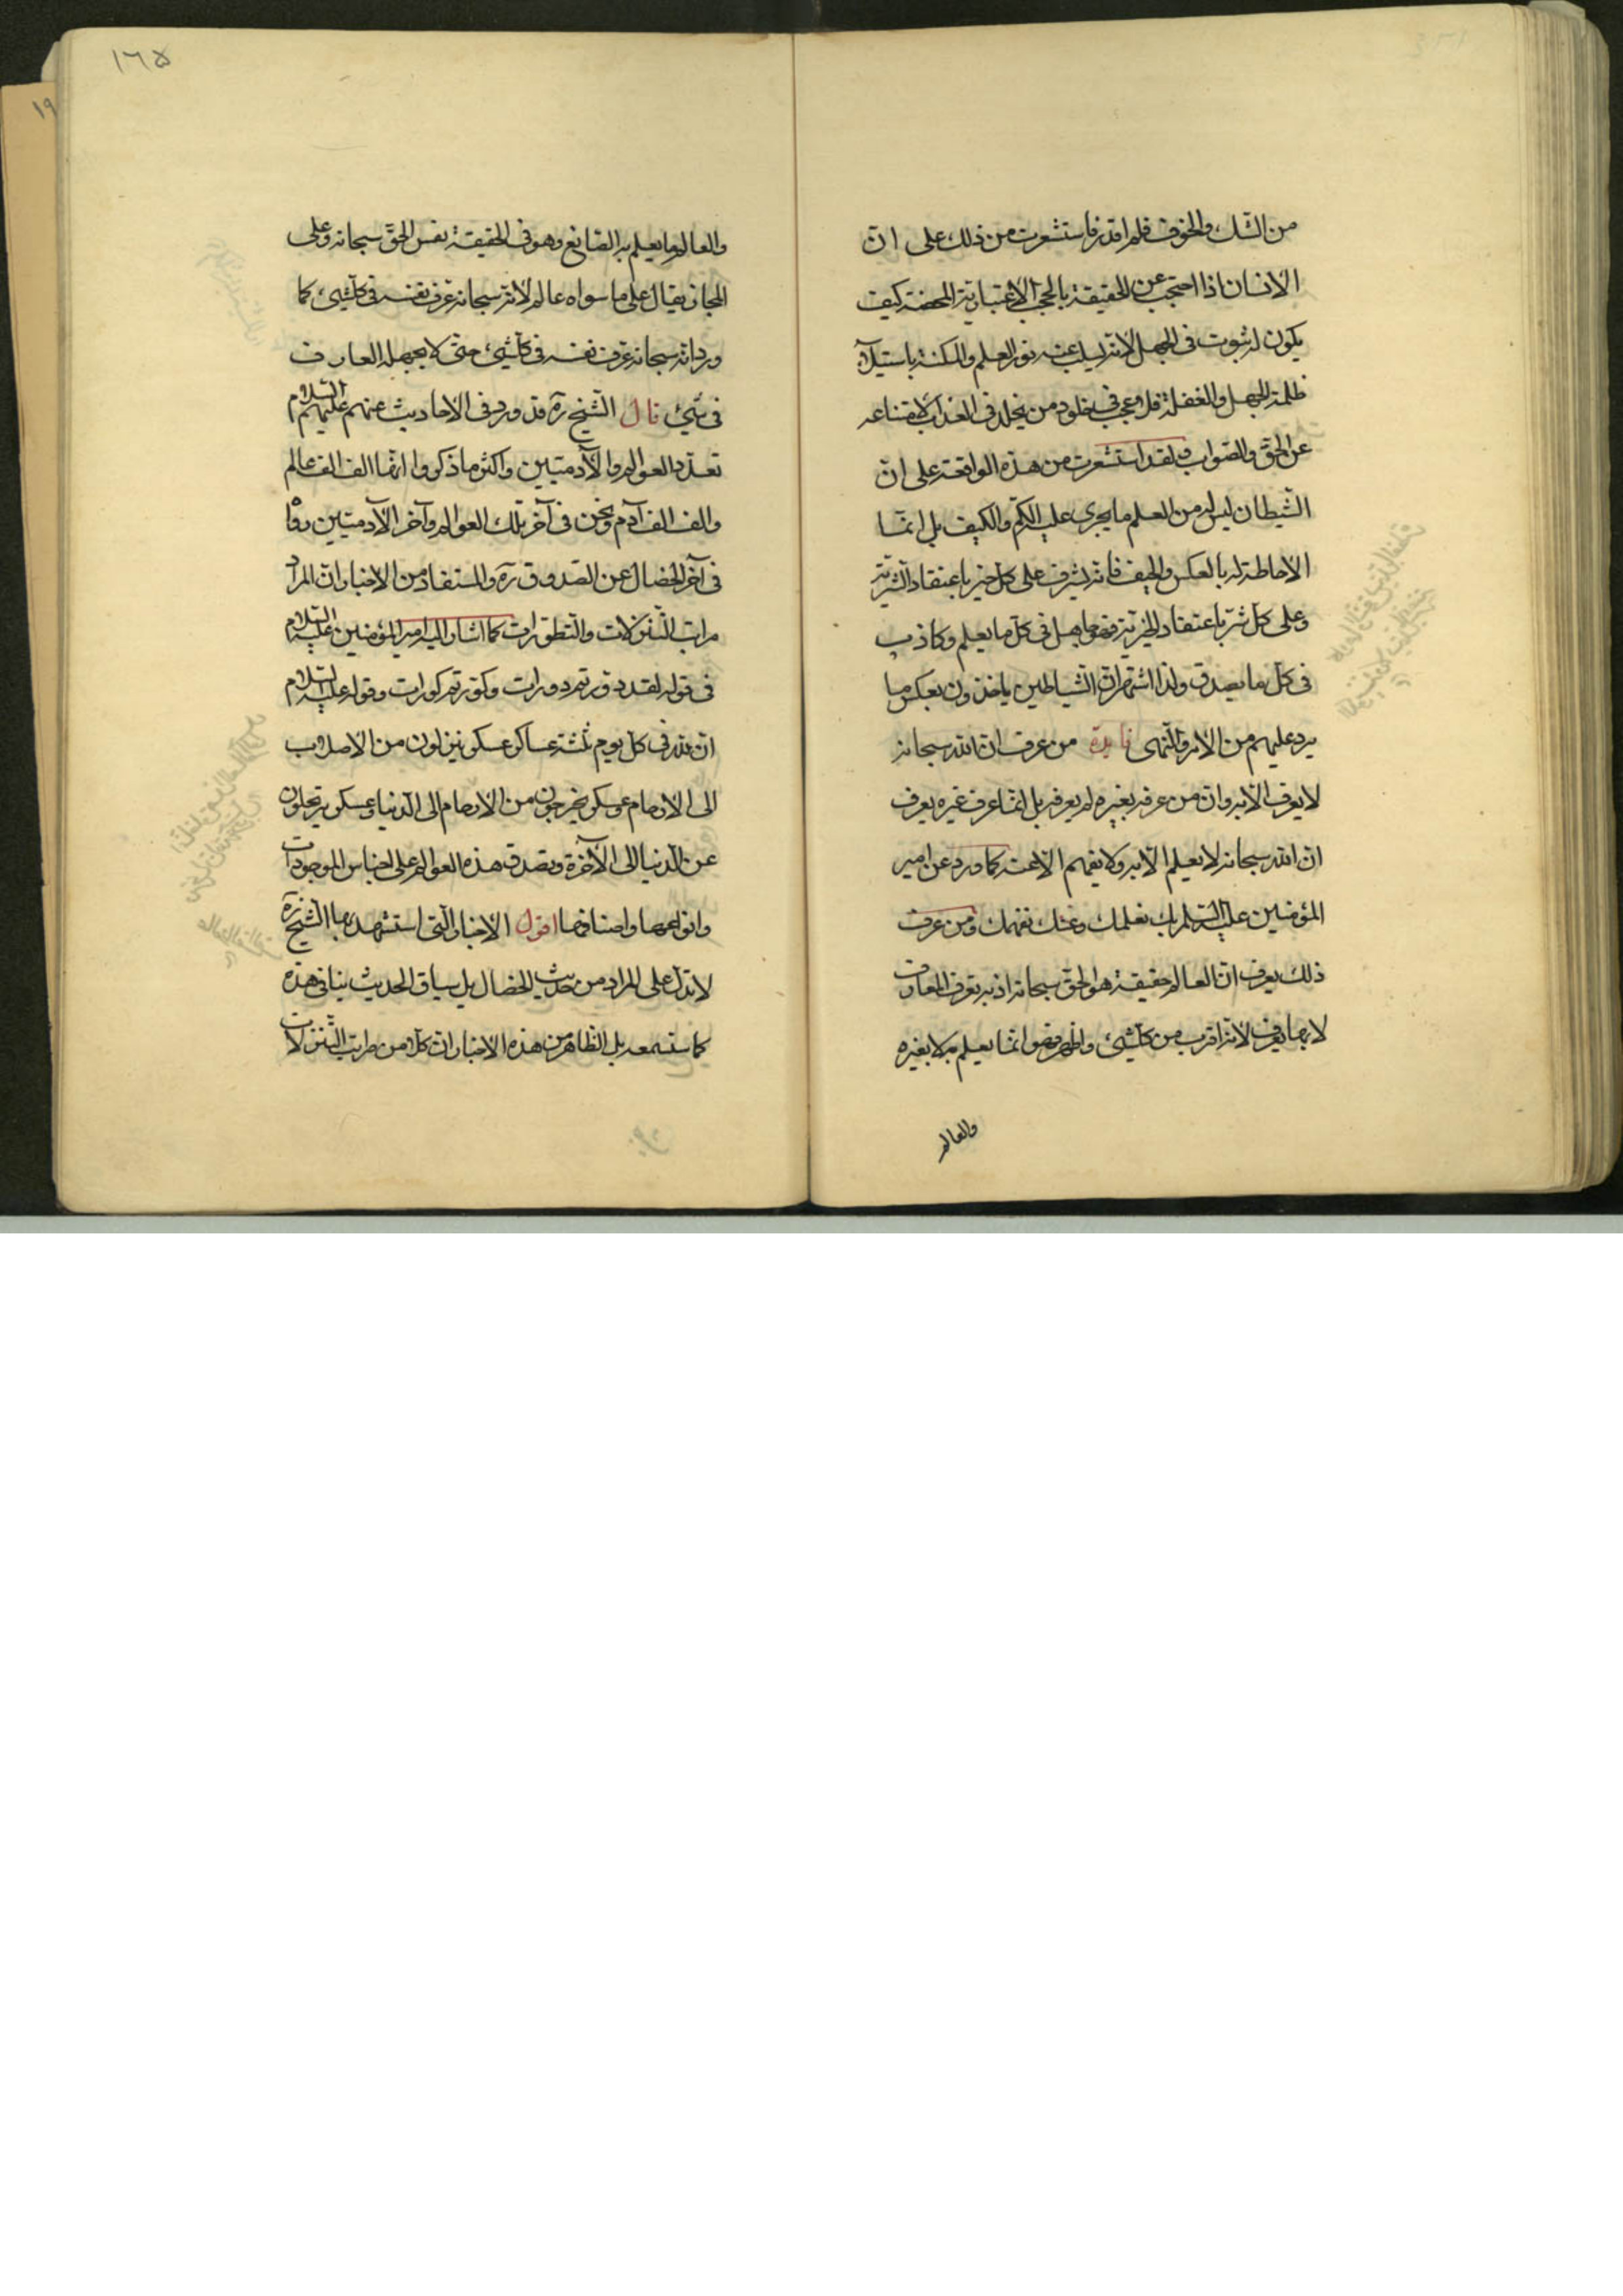 من الشك والخوف فلم اقدر فاستشعرت من ذلك على ان
الانسان اذا احتجب عن الحقيقة بالحجب الاعتبارية المحضة كيف
يكون له ثبوت فى الجهل لانه يسلب عنه نور العلم والمكنة باستيلاء
ظلمة الجهل والغفلة فلا عجب فى خلود من يخلد فى العذاب لامتناعه
عن الحق والصواب ولقد استشعرت من هذه الواقعة على ان
الشيطان ليس له من العلم ما يجرى عليه الكم والكيف بل انما
الاحاطة له بالعكس والحيف فانه يشرف على كل خير باعتقاد الشرية
وعلى كل شر باعتقاد الخيرية فهو جاهل فى كل ما يعلم وكاذب
فى كل ما يصدق ولذا اشتهر ان الشياطين ياخذون بعكس ما
يرد عليهم من الامر والنهى فايدة من عرف ان الله سبحانه
لا يعرف الا به وان من عرفه بغيره لم يعرفه بل انما عرف غيره يعرف
ان الله سبحانه لا يعلم الا به ولا يفهم الا عنه كما ورد عن امير
المؤمنين عليه السلم بك نعلمك وعنك نفهمك ومن عرف
ذلك يعرف ان العالم حقيقة هو الحق سبحانه اذ به تعرف المعارف
لا بها يعرف لانه اقرب من كلشئ واظهر فهو انما يعلم به لا بغيره
والعالم
١٦٥
والعالم ما يعلم به الصانع وهو فى الحقيقة نفس الحق سبحانه وعلى
المجاز يقال على ما سواه عالم لانه سبحانه عرف نفسه فى كلشئ كما
ورد انه سبحانه عرف نفسه فى كلشئ حتى لا يجهله العارف
فى شئ قال الشيخ ره قد ورد فى الاحاديث عنهم عليهم السلام
تعدد العوالم والآدميين واكثر ما ذكروا انها الف الف عالم
والف الف آدم ونحن فى آخر تلك العوالم وآخر الآدميين رواه
فى آخر الخصال عن الصدوق ره والمستفاد من الاخبار ان المراد
مراتب التنزلات والتطورات كما اشار اليه امير المؤمنين عليه السلام
فى قوله لقد دورتم دورات وكورتم كورات وقوله عليه السلام
ان لله فى كل يوم ثلثة عساكر عسكر ينزلون من الاصلاب
الى الارحام وعسكر يخرجون من الارحام الى الدنيا وعسكر يرتحلون
عن الدنيا الى الآخرة وتصدق هذه العوالم على اجناس الموجودات
وانواعها واصنافها اقول الاخبار التى استشهد بها الشيخ ره
لا تدل على المراد من حديث الخصال بل سياق الحديث ينافى هذه
كما ستسمعه بل الظاهر من هذه الاخبار ان كلا من مراتب التنزلات
١٩